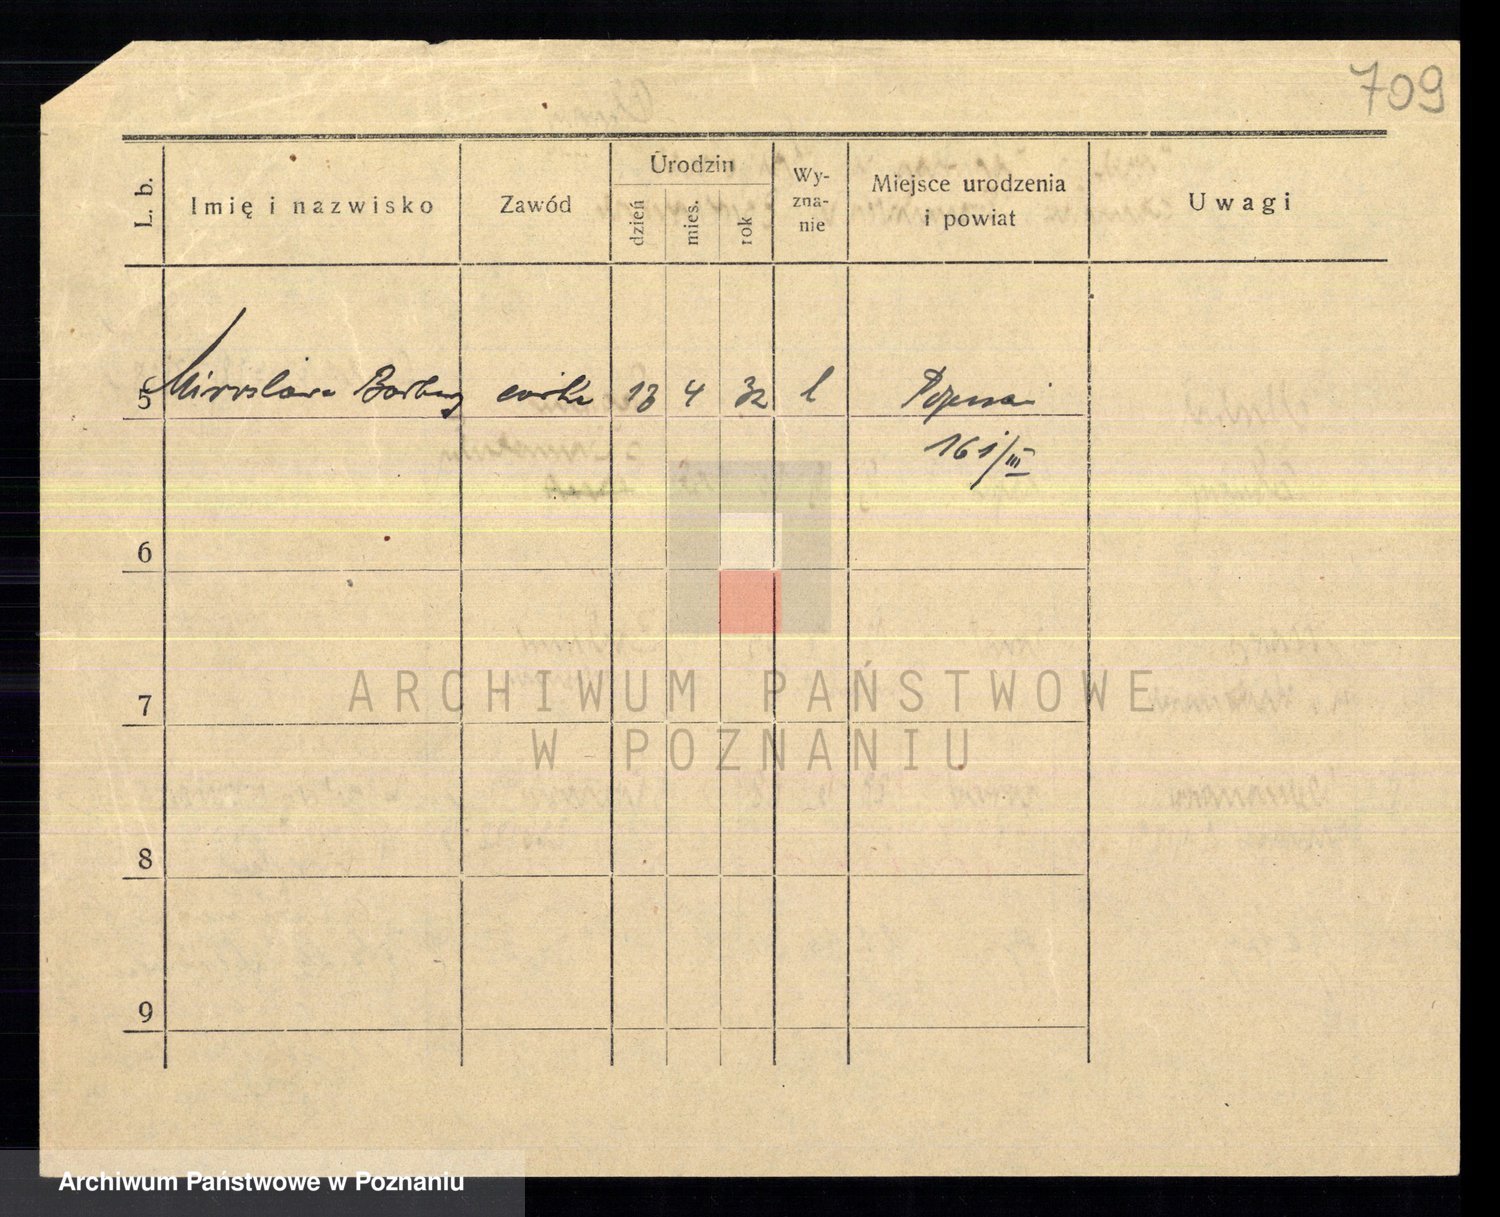 709
L. b.
Imię i nazwisko
Zawód
Urodzin
dzień
mies.
rok
Wy-
zna-
nie
Miejsce urodzenia
i powiat
Uwagi
5 Mirosława Barbara córka 13 4 32 k Poznań
161/III
6
7
8
9
ARCHIWUM PAŃSTWOWE
W POZNANIU
Archiwum Państwowe w Poznaniu